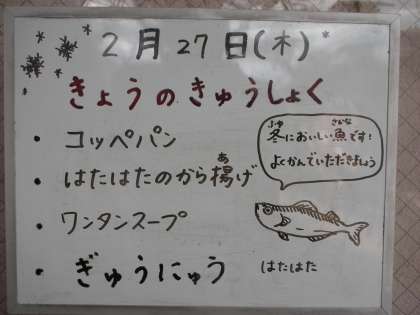 2月27日(木)
きょうのきゅうしょく
・コッペパン
・はたはたのから揚げ
あ
・ワンタンスープ
・ぎゅうにゅう
ふゆ さかな
冬においしい魚です!
よくかんでいただきましょう
はたはた